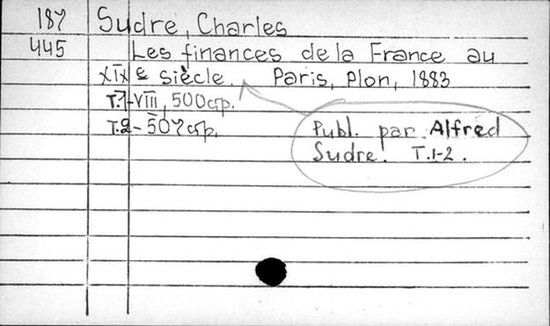 187 Sudre, Charles
445 Les finances de la France au
XIXe siècle. Paris, Plon, 1883
T.1-VIII, 500 стр.
T.2-507 стр.
Publ. par Alfred
Sudre. T.1-2.